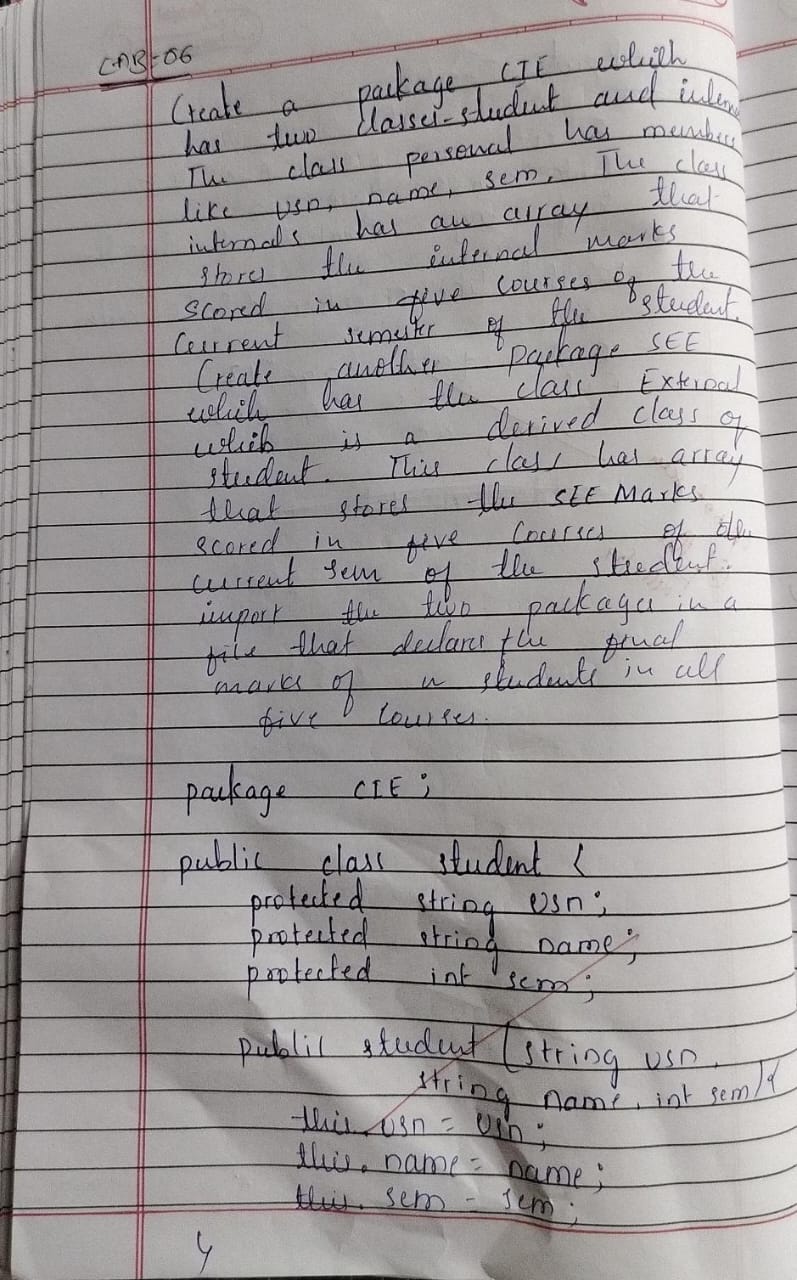 LAB-06
Create a package CIE which
has two classes-student and intern
The class personal has members
like usn, name, sem. The class
internals has an array that
stores the internal marks
scored in five courses of the
current semester of the student.
Create another package SEE
which has the class External
which is a derived class of
student. This class has array
that stores the SEE Marks
scored in five courses of the
current sem of the student.
import the two packages in a
file that declares the final
marks of n students in all
five courses.
package CIE;
public class student {
protected string usn;
protected string name;
protected int sem;
public student (string usn,
string name, int sem){
this.usn = usn;
this.name = name;
this.sem = sem;